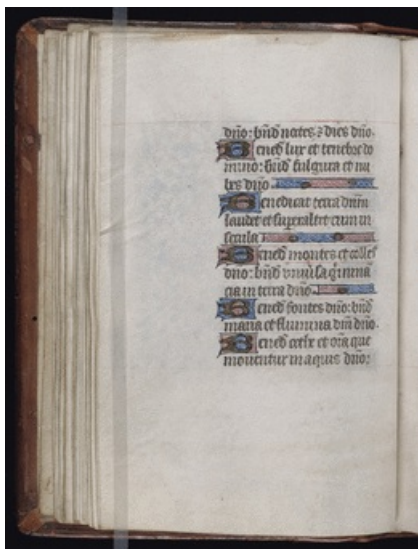 dño: bñd noctes ⁊ dies dño.
Bened lux et tenebre do
mino: bñd fulgura et nu
bes dño
Benedicat terra dñm
laudet et superaltet eum in
secula
Bened montes et colles
dño: bñd
cia in terra dño.
Bened fontes dño: bñd
maria et flumina dño.
Bened cete et oĩa que
mouentur in aquis dño: